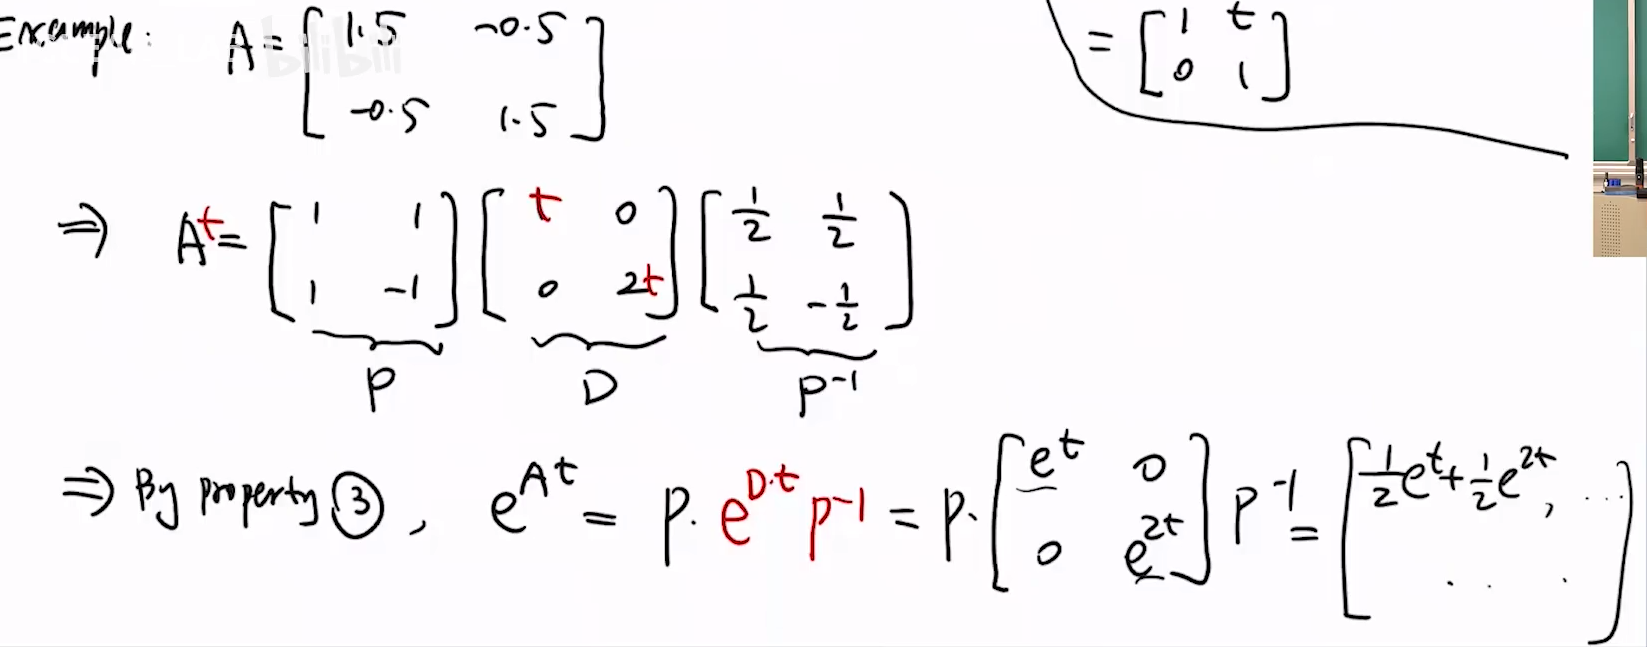 Example: A = [1.5 -0.5; -0.5 1.5]
bilibili
= [1 t; 0 1]
⇒ At = [1 1; 1 -1] [t 0; 0 2t] [1/2 1/2; 1/2 -1/2]
P D P⁻¹
⇒ By property ③, e^{At} = P. e^{D·t} P⁻¹ = P. [e^t 0; 0 e^{2t}] P⁻¹ = [1/2 e^t + 1/2 e^{2t}, ...; . . .]